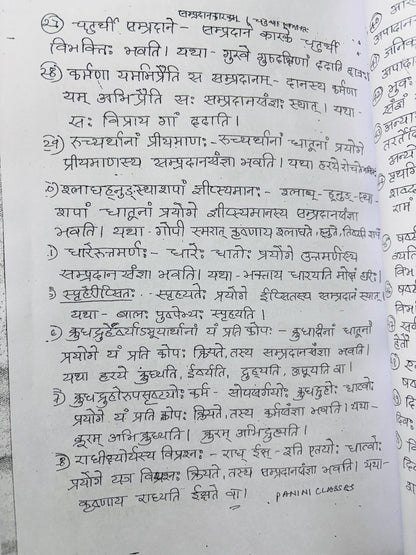 सम्प्रदानकारकम् (चतुर्थी विभक्ति)
(27) चतुर्थी सम्प्रदाने - सम्प्रदाने कारके चतुर्थी
विभक्तिः भवति। यथा - गुरवे गुरुदक्षिणां ददाति
(28) कर्मणा यमभिप्रैति स सम्प्रदानम् - दानस्य कर्मणा
यम् अभिप्रैति सः सम्प्रदानसंज्ञः स्यात्। यथा-
सः विप्राय गां ददाति।
(29) रुच्यर्थानां प्रीयमाणः - रुच्यर्थानां धातूनां प्रयोगे
प्रीयमाणस्य सम्प्रदानसंज्ञा भवति। यथा हरये रोचते भक्तिः
श्लाघह्नुङ्स्थाशपां ज्ञीप्स्यमानः - श्लाघ्-ह्नुङ्-स्था-
शपां धातूनां प्रयोगे ज्ञीप्स्यमानस्य सम्प्रदानसंज्ञा
भवति। यथा- गोपी स्मरात् कृष्णाय श्लाघते, ह्नुते, तिष्ठते, शपते
धारेरुत्तमर्णः - धारेः धातोः प्रयोगे उत्तमर्णस्य
सम्प्रदान संज्ञा भवति। यथा- भक्ताय धारयति मोक्षं हरिः।
स्पृहेरीप्सितः - स्पृहयतेः प्रयोगे ईप्सितस्य सम्प्रदानं स्यात्
यथा- बालः पुष्पेभ्यः स्पृहयति।
क्रुधद्रुहेर्ष्यासूयार्थानां यं प्रति कोपः - क्रुधादीनां धातूनां
प्रयोगे यं प्रति कोपः क्रियते, तस्य सम्प्रदानसंज्ञा भवति।
यथा हरये क्रुध्यति, ईर्ष्यति, द्रुह्यति, असूयति वा।
क्रुधद्रुहोरुपसृष्टयोः कर्म - सोपसर्गयोः क्रुधद्रुहोः धात्वोः
प्रयोगे यं प्रति कोपः क्रियते, तस्य कर्मसंज्ञा भवति। यथा-
क्रूरम् अभिक्रुध्यति। क्रूरम् अभिद्रुह्यति।
राधीक्ष्योर्यस्य विप्रश्नः - राध् ईक्ष् - इति एतयोः धात्वोः
प्रयोगे यत्र विप्रश्नः क्रियते, तस्य सम्प्रदानसंज्ञा भवति। यथा-
कृष्णाय राध्यति ईक्षते वा।
PANINI CLASSES